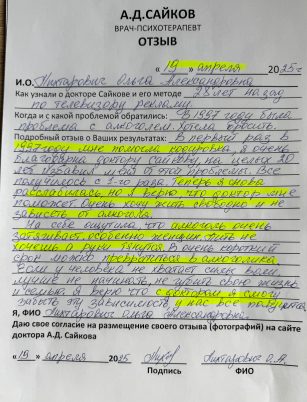 А.Д.САЙКОВ
ВРАЧ-ПСИХОТЕРАПЕВТ
ОТЗЫВ
« 19 » апреля 2025 г
И.О. Пихтарович Ольга Александровна
Как узнали о докторе Сайкове и его методе 28 лет назад
по телевизору рекламу.
Когда и с какой проблемой обратились: В 1997 году была
проблема с алкоголем, хотела бросить.
Подробный отзыв о Ваших результатах: В первый раз в
1997 году мне помогла кодировка. Я очень
благодарна доктору Сайкову, на целых 20
лет избавил меня от этой проблемы. Все
получилось с 1-го раза. Теперь я снова
но я верю что доктор мне
поможет. Очень хочу жить свободно и не
зависеть от алкоголя.
На себе ощутила, что алкоголь очень
затягивает особенно женщин, пить не
хочешь а руки тянутся. В очень короткий
срок можно превратиться в алкоголика.
Если у человека не хватает силы воли,
лучше не начинать, не губить свою жизнь
и семью. Я верю что с доктором я смогу
забыть эту зависимость, у нас все получится
Я, ФИО Пихтарович Ольга Александровна
Даю свое согласие на размещение своего отзыва (фотографий) на сайте
доктора А.Д. Сайкова
« 19 » апреля 2025 Пихтарович О.А.
Подпись ФИО